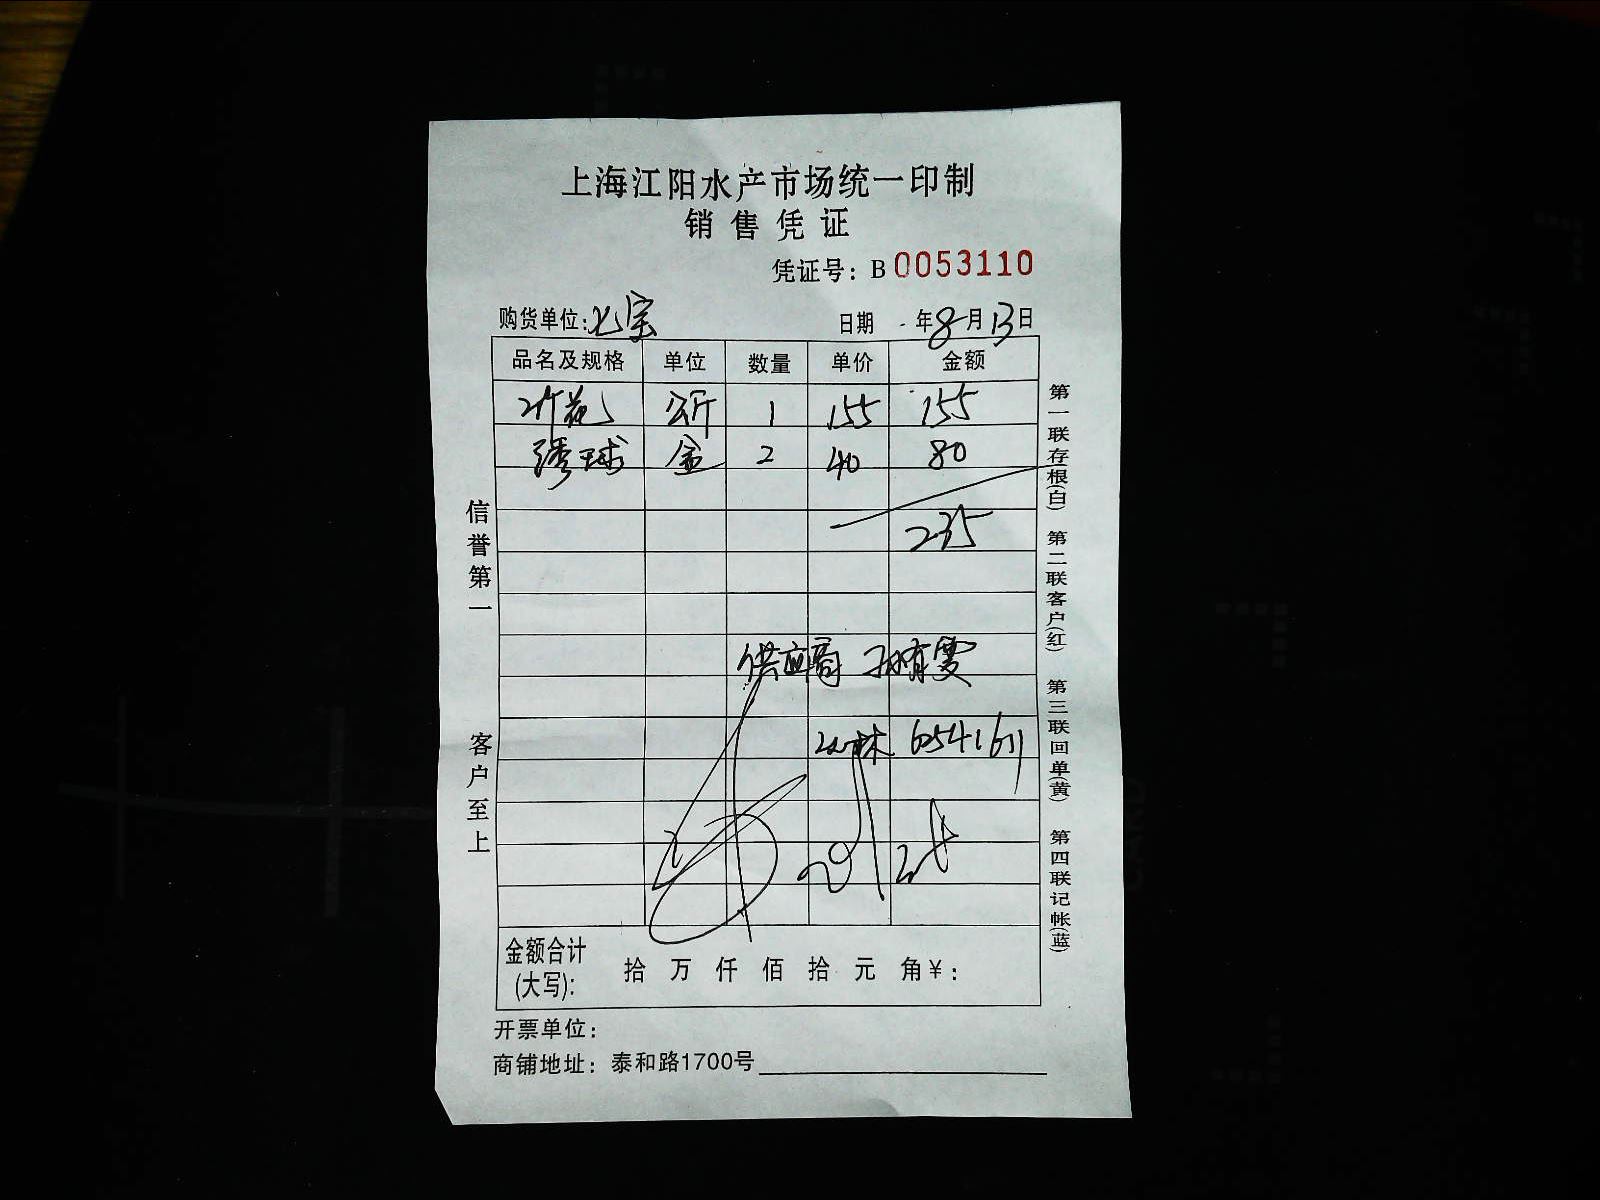 上海江阳水产市场统一印制
销售凭证
凭证号：B 0053110
购货单位：七宝 日期 年8月13日
品名及规格 单位 数量 单价 金额
公斤 1 155 155
绣球 盒 2 40 80
235
供应商
6541611
金额合计
(大写)： 拾 万 仟 佰 拾 元 角￥：
开票单位：
商铺地址：泰和路1700号
信誉第一
客户至上
第一联存根(白)
第二联客户(红)
第三联回单(黄)
第四联记帐(蓝)